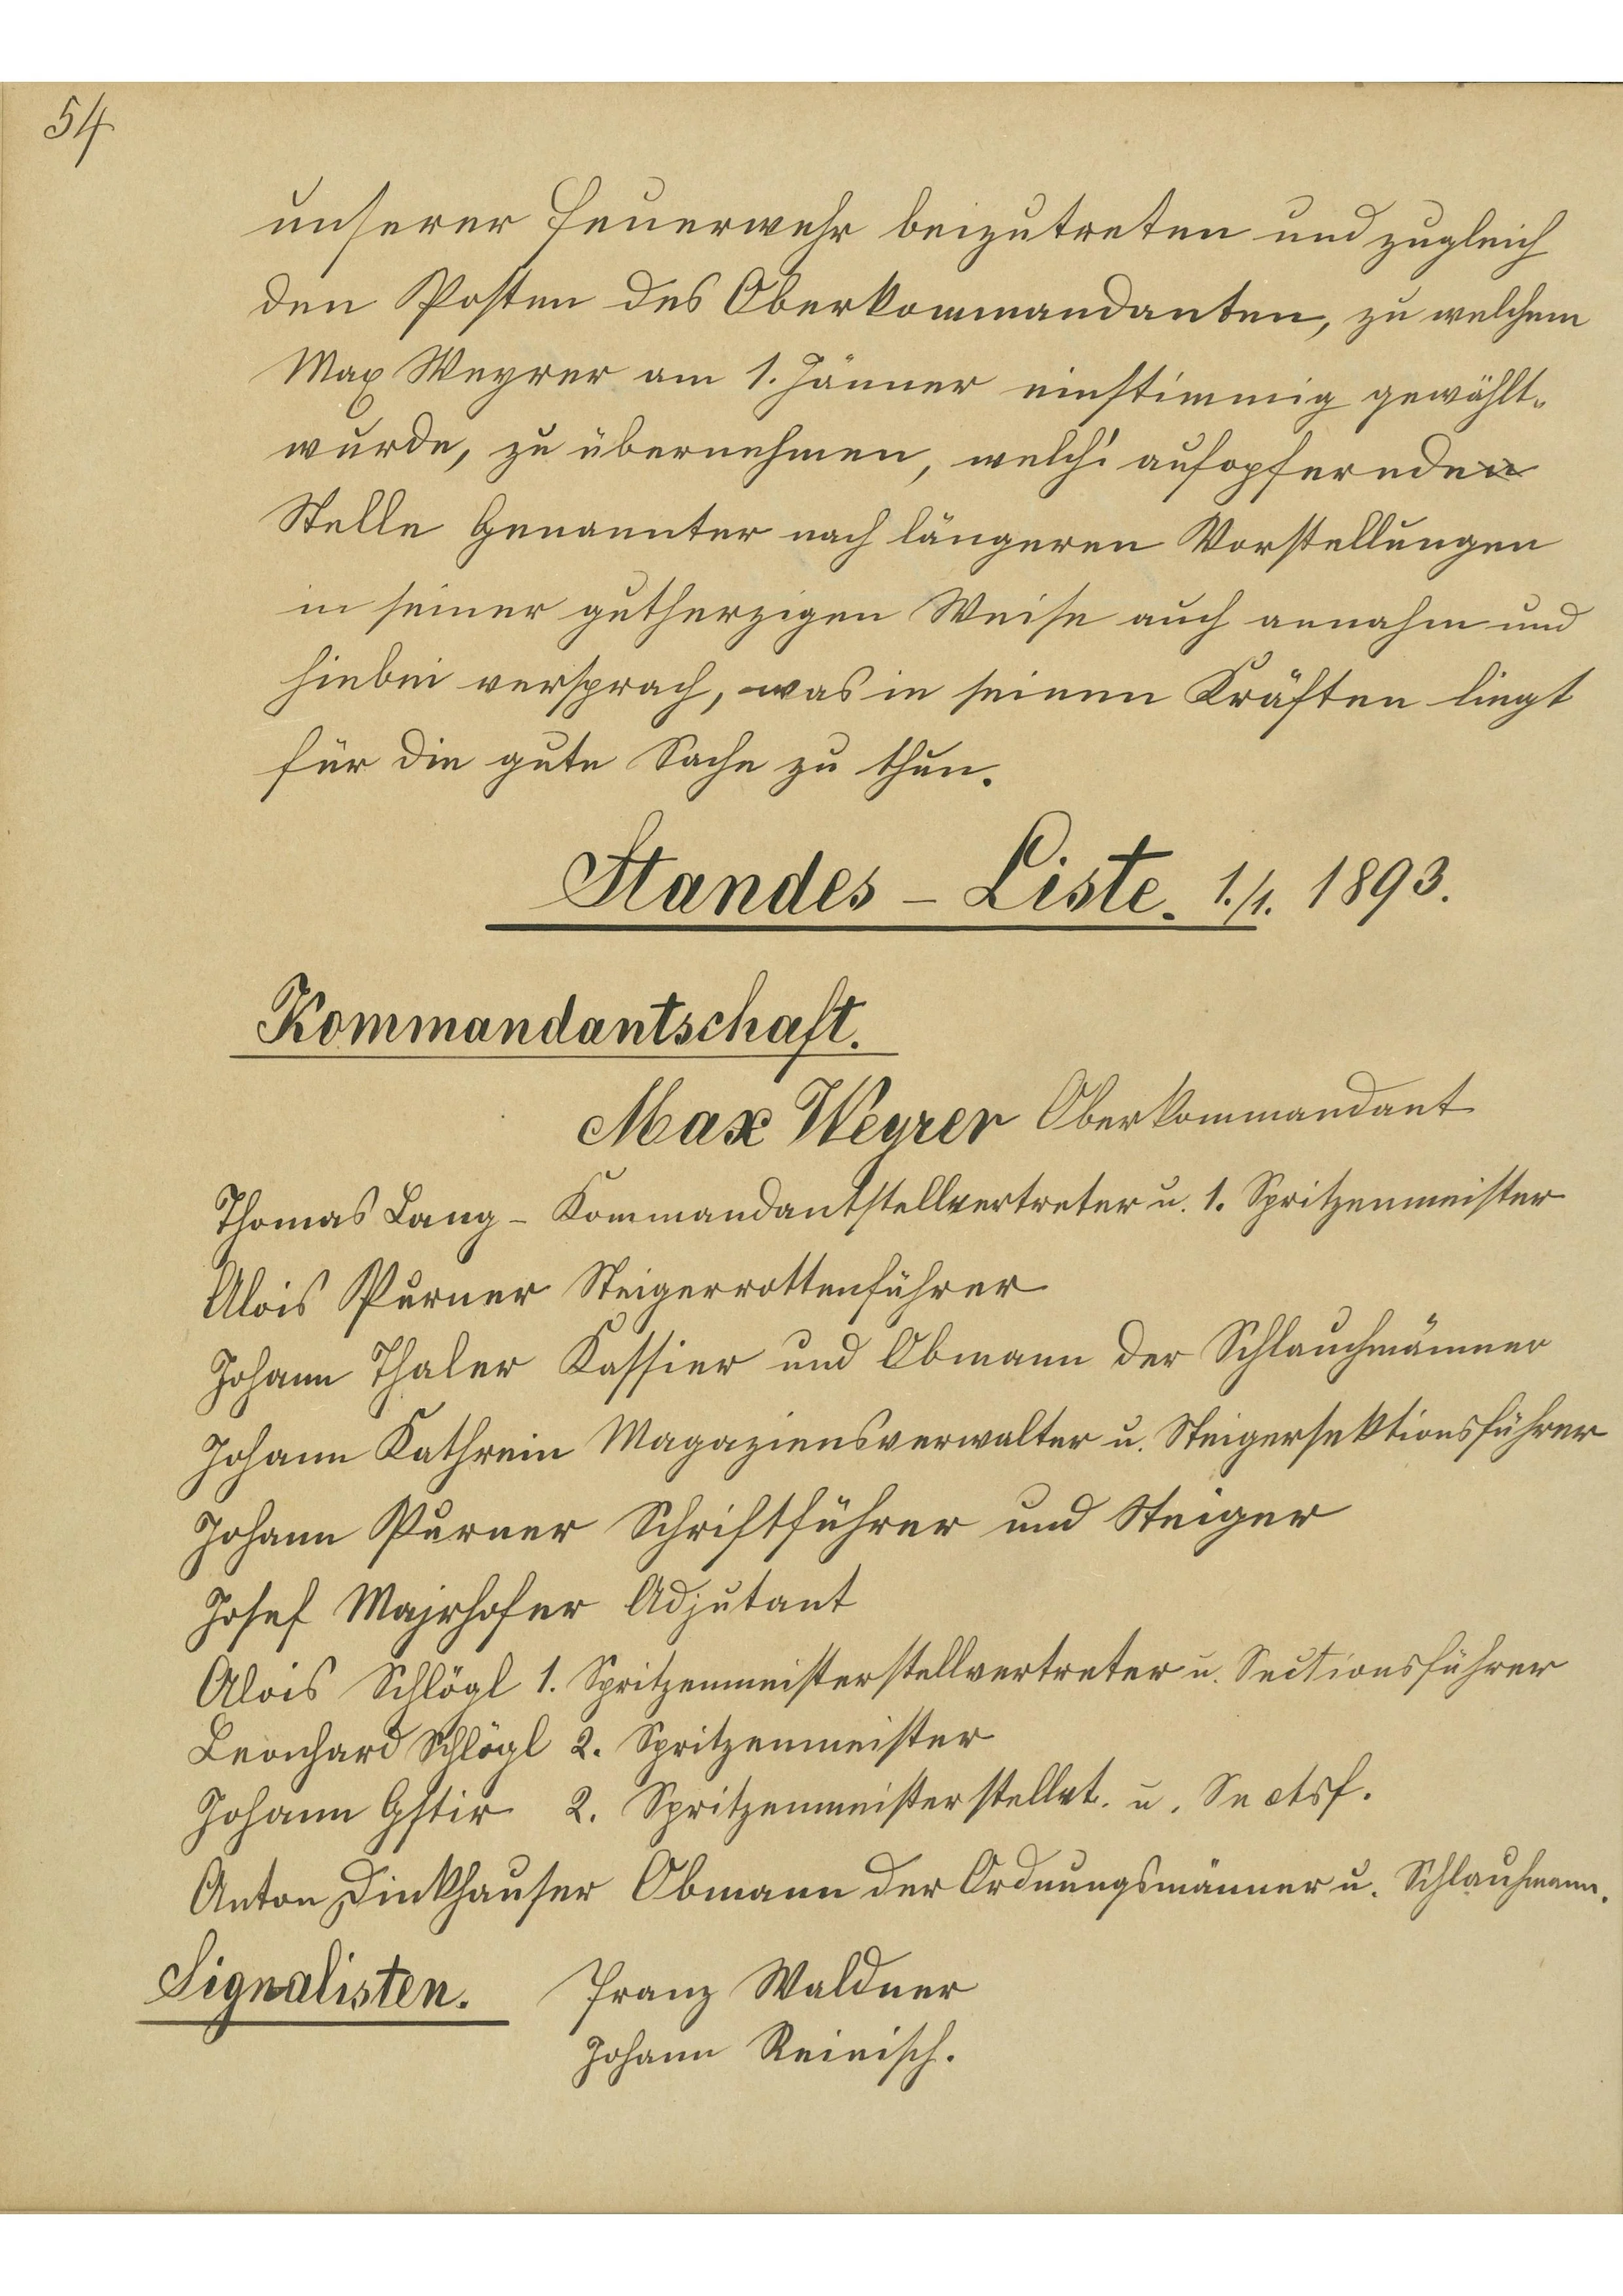 54
unserer Feuerwehr beizutreten und zugleich
den Posten des Oberkommandanten, zu welchem
Max Weyrer am 1. Jänner einstimmig gewählt
wurde, zu übernehmen, welch' aufopfernden
Stelle Genannter nach längeren Vorstellungen
in seiner gutherzigen Weise auch annahm und
hiebei versprach, was in seinen Kräften liegt
für die gute Sache zu thun.
Standes - Liste. 1./1. 1893.
Kommandantschaft.
Max Weyrer Oberkommandant
Thomas Lang - Kommandantstellvertreter u. 1. Spritzenmeister
Alois Purner Steigerrottenführer
Johann Thaler Kassier und Obmann der Schlauchmänner
Johann Kathrein Magaziensverwalter u. Steigersektionsführer
Johann Purner Schriftführer und Steiger
Josef Majrhofer Adjutant
Alois Schlögl 1. Spritzenmeisterstellvertreter u. Sectionsführer
Leonhard Schlögl 2. Spritzenmeister
Johann Gstir 2. Spritzenmeisterstellvt. u. Sectsf.
Anton Dinkhauser Obmann der Ordnungsmänner u. Schlauhmann.
Signalisten. Franz Waldner
Johann Reinisch.